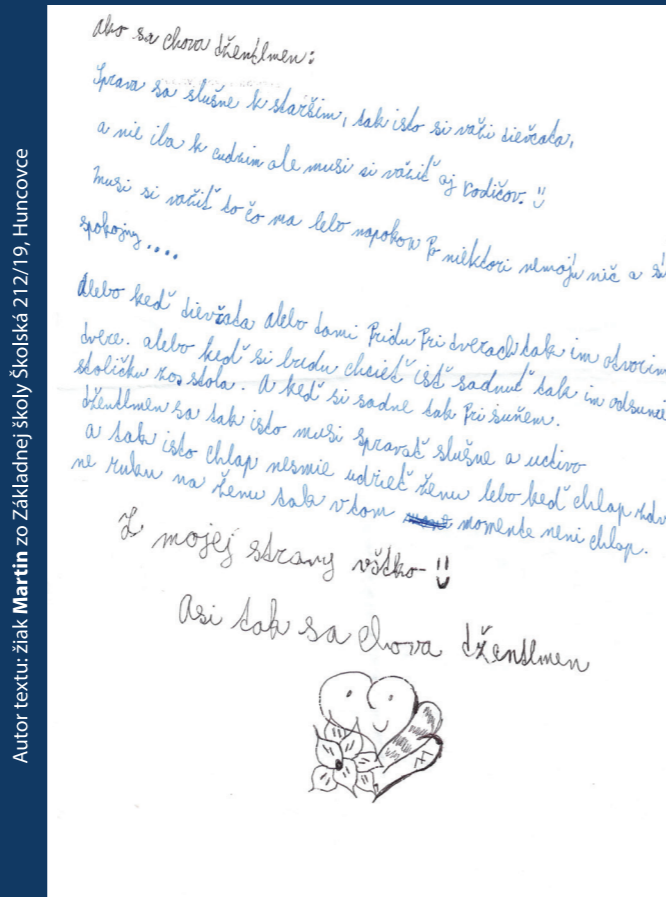 Autor textu: žiak Martin zo Základnej školy Školská 212/19, Huncovce
Ako sa chova džentlmen:
Sprava sa slušne k starším, tak isto si važi dievčata,
a nie iba k cudzim ale musi si vážiť aj rodičov. ű
Musi si važiť to čo ma lebo napokon niektori nemaju nič a sú
spokojny....
Alebo keď dievčata alebo dami Pridu Pri dverach tak im otvorim
dvere. alebo keď si budu chcieť isť sadnuť tak im odsunie
stoličku zos stola. A keď si sadne tak Pri suňem.
džentlmen sa tak isto musi spravať slušne a uctivo
a tak isto chlap nesmie udrieť ženu lebo keď chlap zdv
ne ruku na ženu tak v tom momente neni chlap.
Z mojej strany všTko- ű
Asi tak sa chova džentlmen